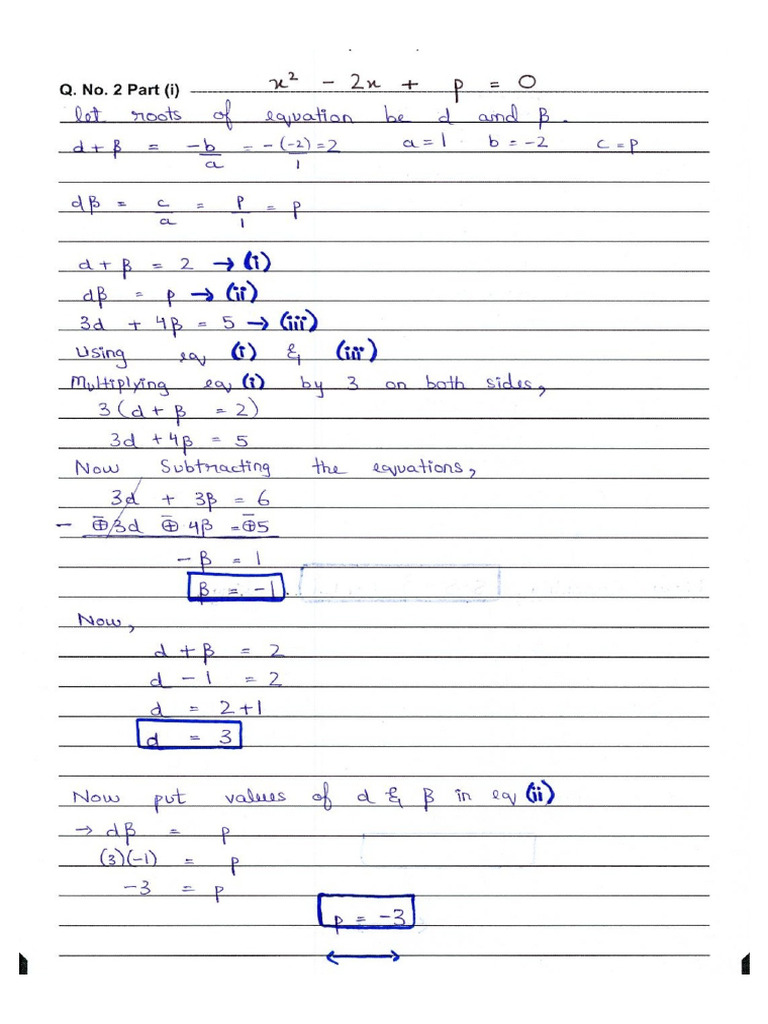 Q. No. 2 Part (i) x² - 2x + p = 0
let roots of equation be α and β.
α + β = -b/a = -(-2)/1 = 2 a = 1 b = -2 c = p
αβ = c/a = p/1 = p
α + β = 2 → (i)
αβ = p → (ii)
3α + 4β = 5 → (iii)
Using eq (i) & (iii)
Multiplying eq (i) by 3 on both sides,
3(α + β = 2)
3α + 4β = 5
Now Subtracting the equations,
3α + 3β = 6
- ⊕3α ⊕ 4β = ⊕5
-β = 1
β = -1.
Now,
α + β = 2
α - 1 = 2
α = 2+1
α = 3
Now put values of α & β in eq (ii)
→ αβ = p
(3)(-1) = p
-3 = p
p = -3